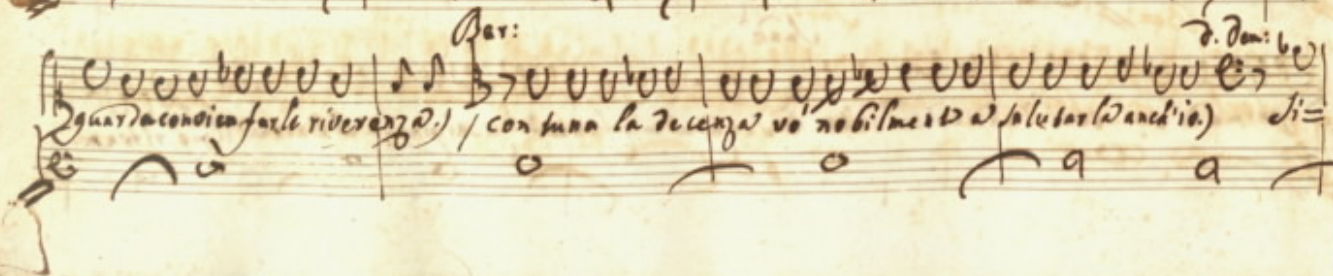 Bar: d. Dem:
guarda convien farle riverenza.) (con tuna la decenza vo' nobilmente a salutarla anch'io.) Si=